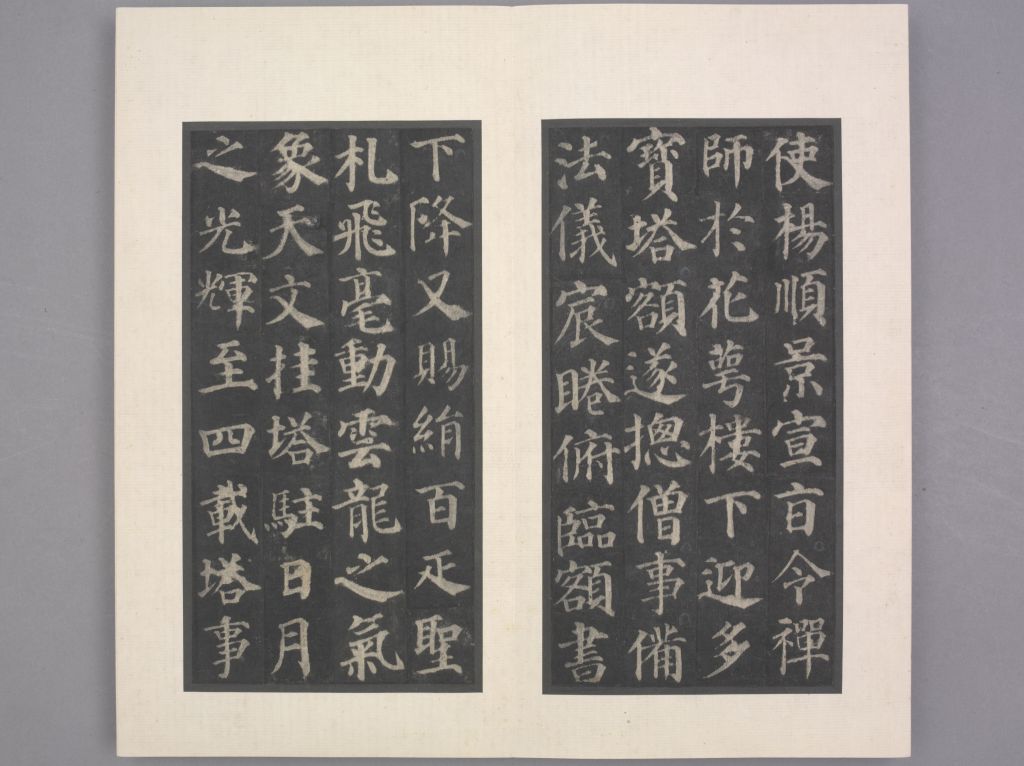 使楊順景宣旨令禪
師於花萼樓下迎多
寶塔額遂揔僧事備
法儀宸睠俯臨額書
下降又賜絹百疋聖
札飛毫動雲龍之氣
象天文挂塔駐日月
之光輝至四載塔事